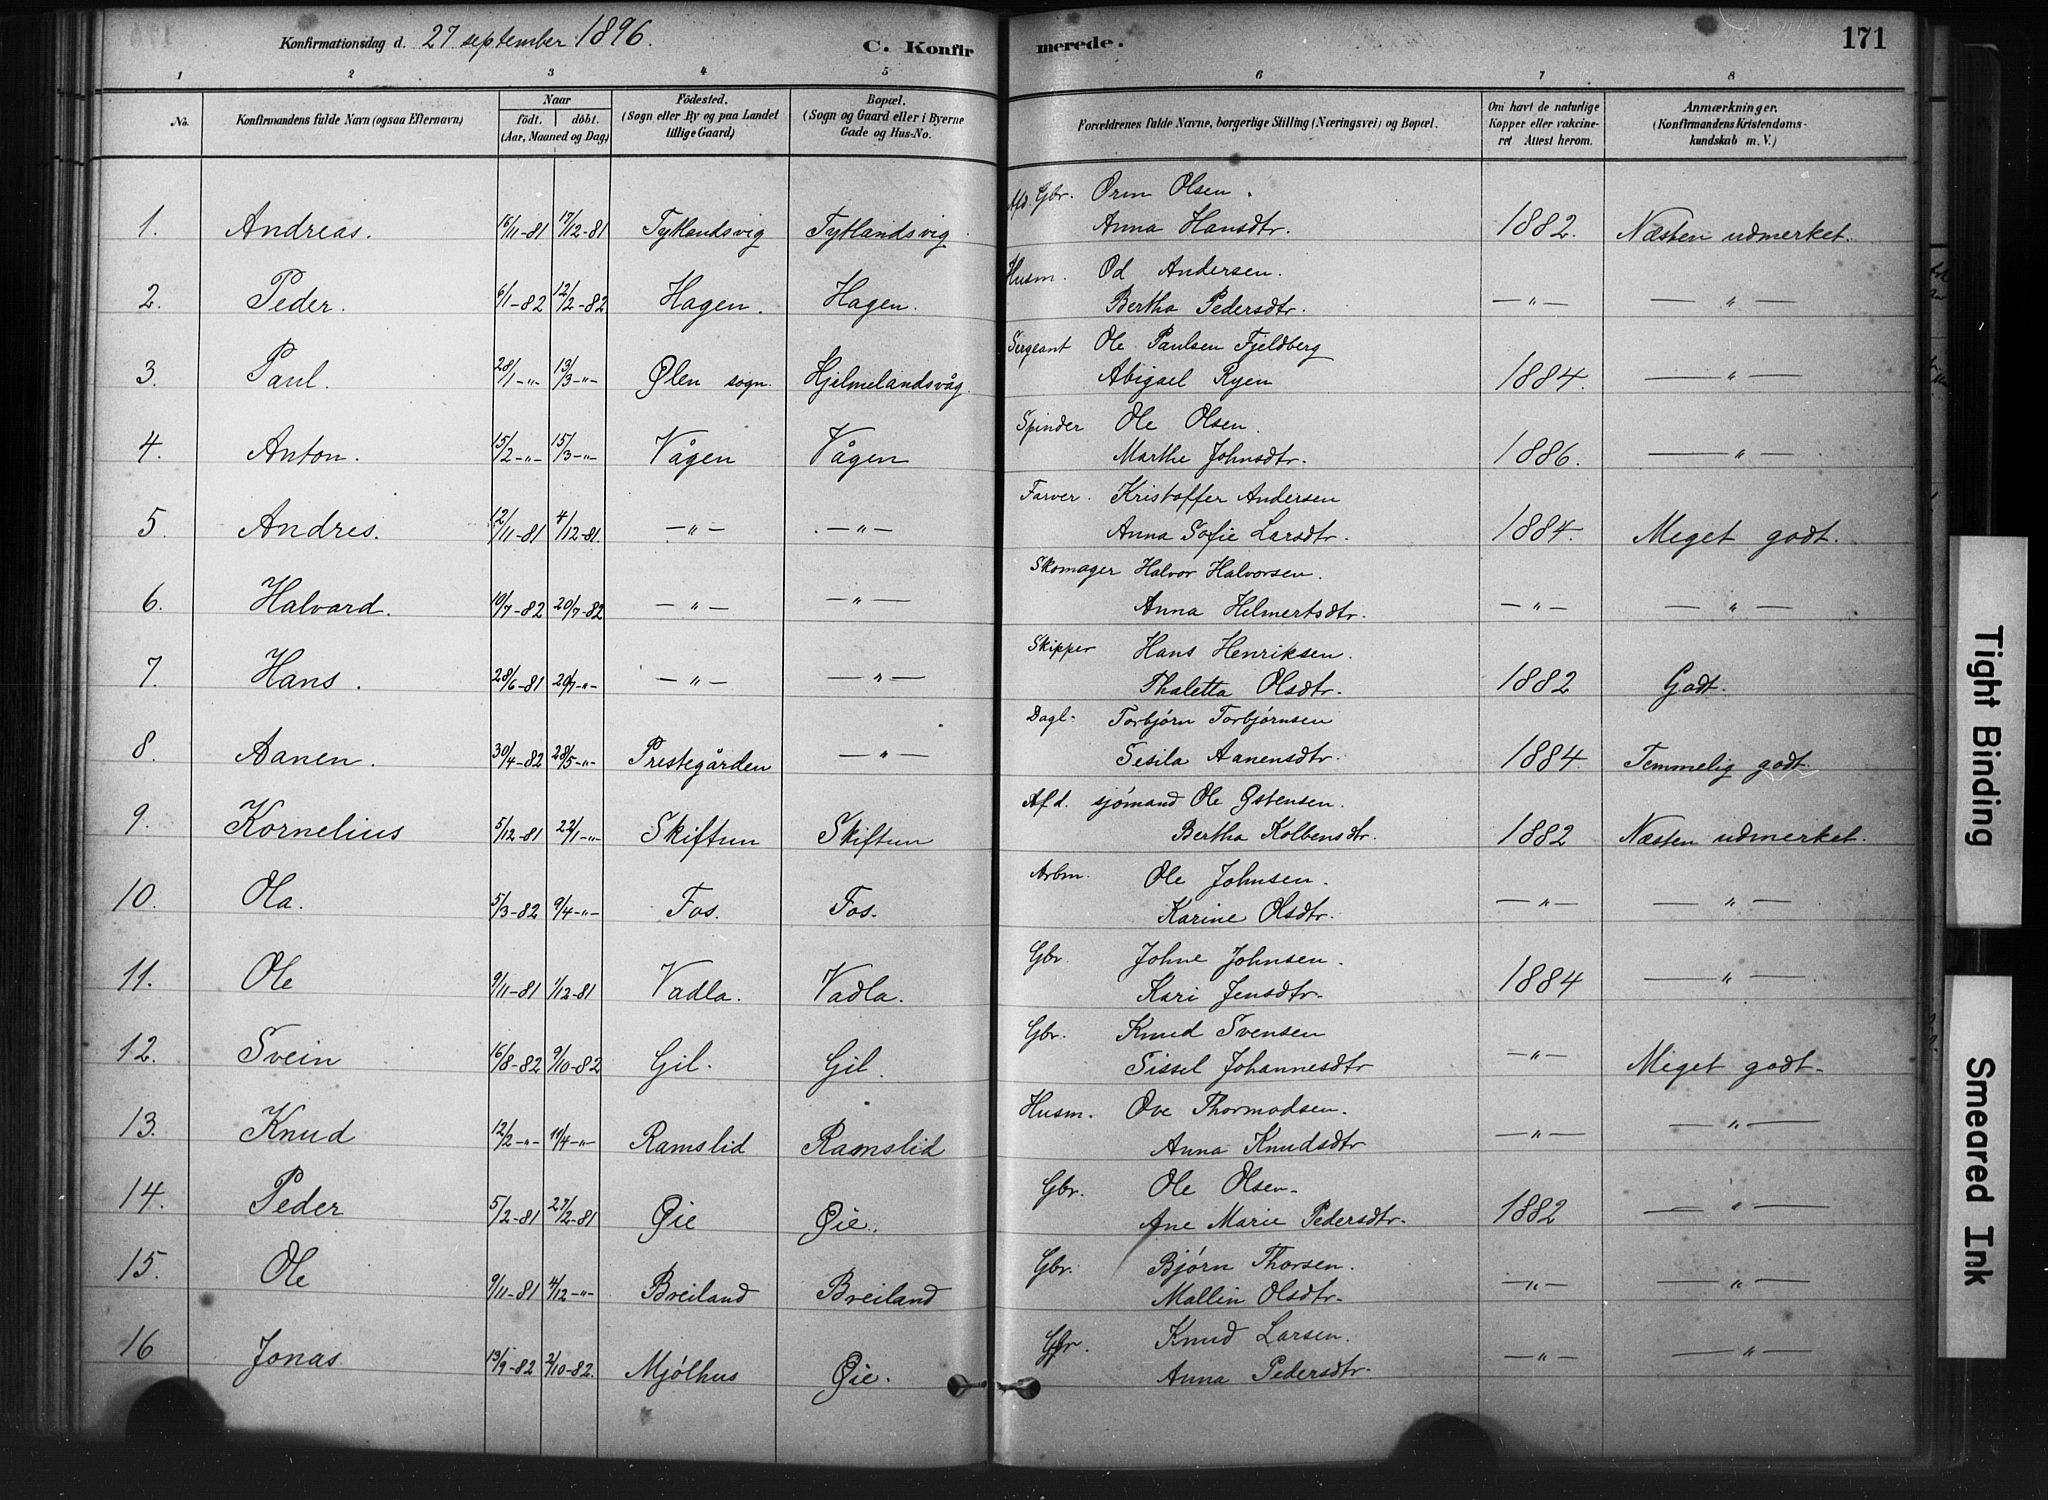 Konfirmationsdag d. 27 september 1896. C. Konfirmerede. 171
1 2 3 4 5 6 7 8
No. Konfirmandens fulde Navn (ogsaa Efternavn) Naar födt. döbt. (Aar, Maaned og Dag) Födested. (Sogn eller By og paa Landet tillige Gaard) Bopæl. (Sogn og Gaard eller i Byerne Gade og Hus-No. Forældrenes fulde Navne, borgerlige Stilling (Næringsvei) og Bopæl. Om havt de naturlige Kopper eller vakcineret Attest herom. Anmærkninger. (Konfirmandens Kristendomskundskab m. V.)
Afd. Gbr. Orm Olsen.
1. Andreas. 16/11-81 17/12-81 Tytlandsvig Tytlandsvig Anna Hansdtr. 1882. Næsten udmerket.
Husm. Od Andersen.
2. Peder. 6/1-82 12/2-82 Hagen. Hagen. Bertha Pedersdtr. —"— —"—
Sergeant Ole Paulsen Fjeldberg
3. Paul. 28/1-"- 19/3-"- Ølen sogn. Hjelmelandsvåg. Abigael Ryen 1884. —"—
Spinder Ole Olsen.
4. Anton. 15/2-"- 15/3-"- Vågen Vågen Marthe Johnsdtr. 1886. —"—
Farver. Kristoffer Andersen
5. Andres. 12/11-81 4/12-81 —"— —"— Anna Sofie Larsdtr. 1884. Meget godt.
Skomager Halvor Halvorsen.
6. Halvard. 10/7-82 20/7-82 —"— —"— Anna Helmertsdtr. —"— —"—
Skipper Hans Henriksen.
7. Hans. 28/6-81 20/7-"- —"— —"— Thaletta Olsdtr. 1882 Godt.
Dagl. Torbjørn Torbjørnsen
8. Aanen. 30/4-82 28/5-"- Prestegården —"— Sesila Aanensdtr. 1884. Temmelig godt.
Afd. sjómand Ole Østensen.
9. Kornelius 5/12-81 22/1-"- Skiftun Skiftun Bertha Kolbensdtr. 1882 Næsten udmerket.
Arbm. Ole Johnsen.
10. Ola. 5/3-82 9/4-"- Fos. Fos. Karine Olsdtr. —"— —"—
Gbr. Johne Johnsen.
11. Ole 9/11-81 1/12-81 Vadla. Vadla. Kari Jensdtr. 1884 —"—
Gbr. Knud Svensen
12. Svein 16/8-82 9/10-82 Gil. Gil. Sissel Johannesdtr —"— Meget godt.
Husm. Ove Thormodsen.
13. Knud 12/2-"- 11/4-"- Ramslid Ramslid Anna Knudsdtr —"— —"—
Gbr. Ole Olsen.
14. Peder 5/2-81 27/2-81 Øie Øie. Ane Marie Pedersdtr. 1882 —"—
Gbr. Bjørn Thorsen.
15. Ole 9/11-81 4/12-"- Breiland Breiland Mallin Olsdtr. —"— —"—
Gbr. Knud Larsen.
16 Jonas 13/9-82 2/10-82. Mjølhus Øie. Anna Pedersdtr. —"— —"—
Tight Binding
Smeared Ink